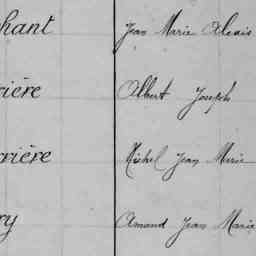 hant Jean Marie Alexis
rière Albert Joseph
rière Michel Jean Marie
ry Amand Jean Marie